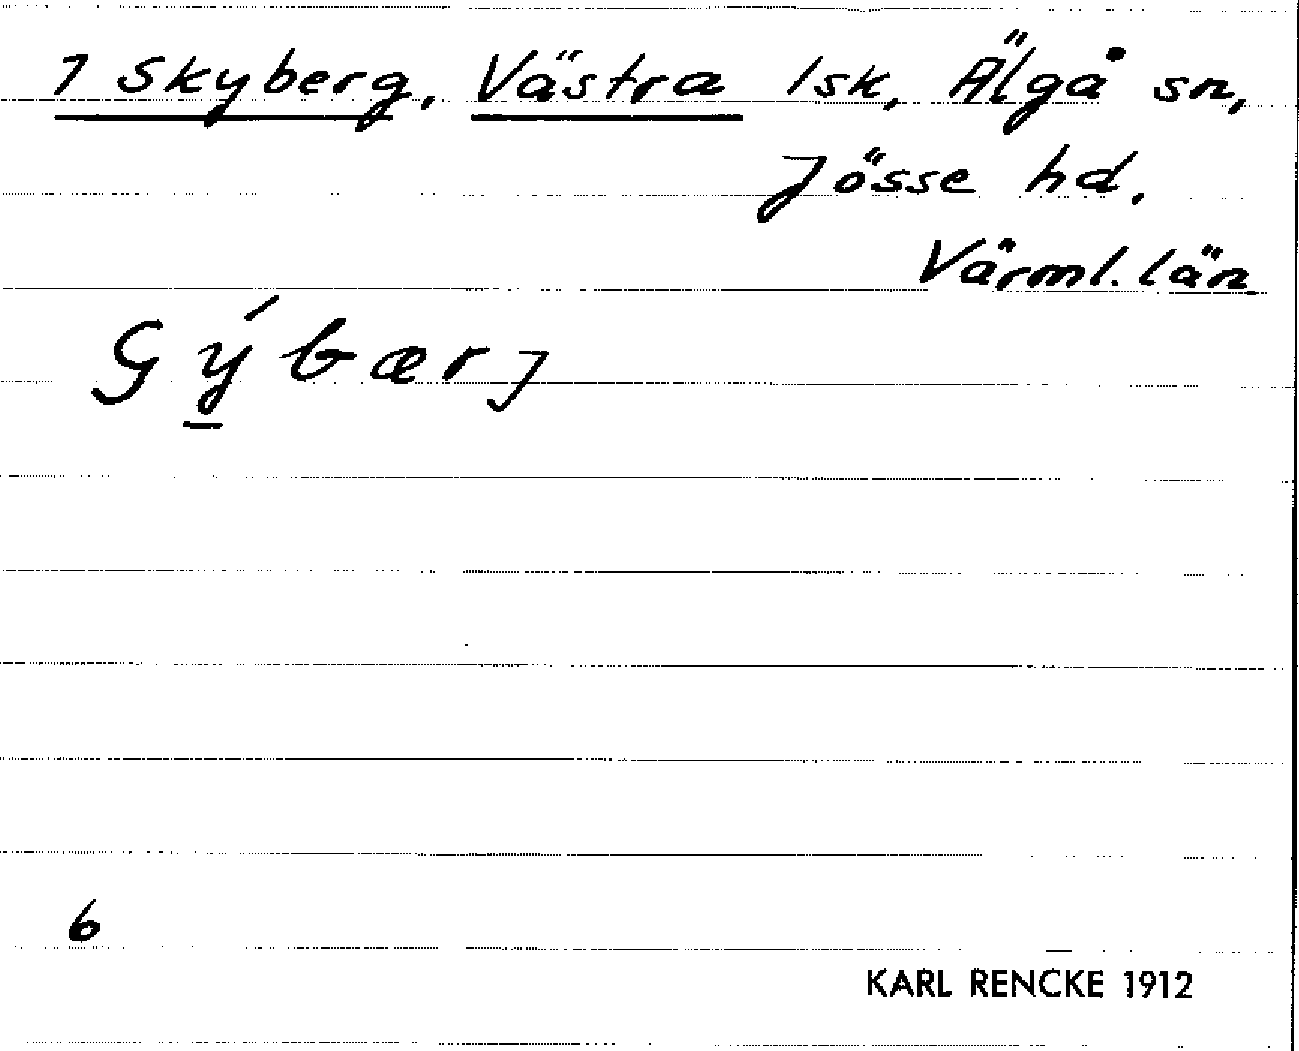 1 Skyberg, Västra 1sk, Älgå sn,
Jösse hd.
Värml. län
Gýbærj
6
KARL RENCKE 1912